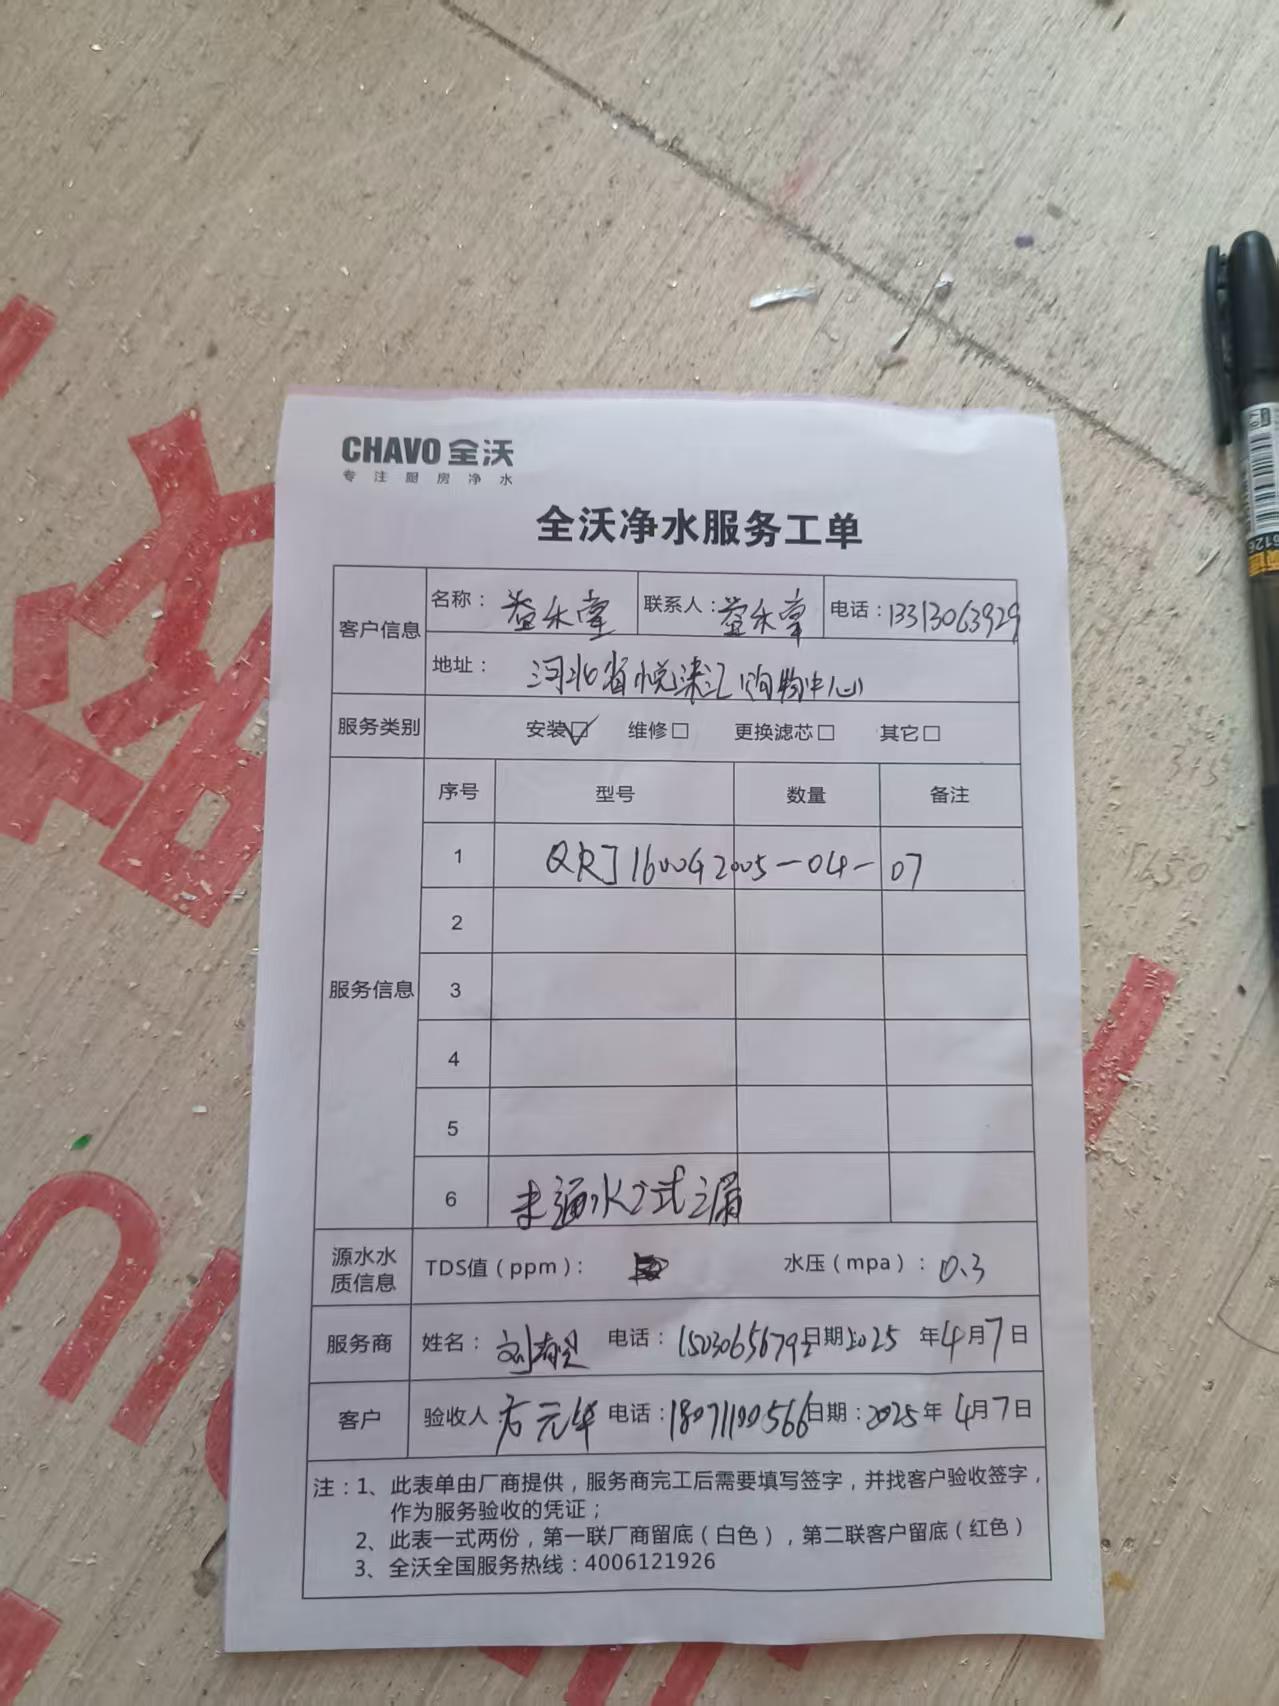 CHAVO 全沃
专注厨房净水
全沃净水服务工单
客户信息
名称： 益禾堂 联系人：益禾堂 电话：13313063929
地址： 河北省悦溁汇购物中心
服务类别 安装☑ 维修□ 更换滤芯□ 其它□
服务信息
序号 型号 数量 备注
1 QRJ1600G2005-04-07
2
3
4
5
6 未通水 试漏
源水水质信息 TDS值（ppm）： 水压（mpa）：0.3
服务商 姓名： 刘 电话：15030656792 日期2025年4月7日
客户 验收人 方元华 电话：18071100566 日期：2025年4月7日
注：1、此表单由厂商提供，服务商完工后需要填写签字，并找客户验收签字，
作为服务验收的凭证；
2、此表一式两份，第一联厂商留底（白色），第二联客户留底（红色）
3、全沃全国服务热线：4006121926